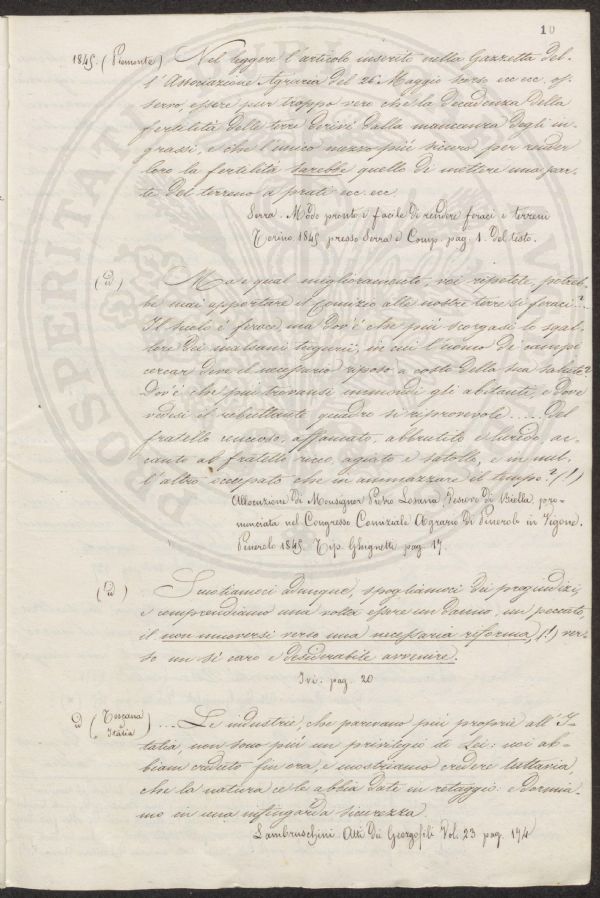 10
1845. (Piemonte) Nel leggere l'articolo inserito nella Gazzetta del-
l'Associazione Agraria del 26. Maggio scorso ecc ecc. os-
servo, essere pur troppo vero che la decadenza della
fertilità delle terre derivi dalla mancanza degli in-
grassi, e che l'unico mezzo più sicuro per render
loro la fertilità sarebbe quello di mettere una par-
te del terreno a prati ecc. ecc
Serra. Modo pronto e facile di rendere feraci i terreni
Torino 1845 presso Serra e Comp. pag. 1. del testo.
(id) Ma e qual miglioramento, voi ripetete, potreb-
be mai apportare il Comizio alle nostre terre sì feraci?...
Il suolo è ferace, ma dov'è che più scorgasi lo squal-
lore dei malsani tugurii, in cui l'uomo de' campi
cercar deve il necessario riposo a costo della sua salute?
Dov'è che più trovansi immondi gli abitanti, e dove
vedesi il ributtante quadro sì riprovevole..... Del
fratello cencioso, affamato, abbrutito e lurido, ac-
canto al fratello ricco, agiato e satollo, e in nul-
l'altro occupato che in ammazzare il tempo? (!)
Allocuzione di Monsignor Pietro Losana, Vescovo di Biella, pro-
nunciata nel Congresso Comiziale Agrario di Pinerolo in Vigone.
Pinerolo 1845. Tip. Ghighetti pag. 17.
(id) Scuotiamoci adunque, spogliamoci dei pregiudizi,
e comprendiamo una volta essere un danno, un peccato,
il non muoversi verso una necessaria riforma, (!) ver-
so un sì caro e desiderabile avvenire.
Ivi. pag. 20
id (Toscana
Italia) ... Le industrie, che parevano più proprie all'I-
talia, non sono più un privilegio di Lei: noi ab-
biam creduto fin ora, e mostriamo credere tuttavia,
che la natura ce le abbia date in retaggio: e dormia-
mo in una infingarda sicurezza.
Lambruschini. Atti dei Georgofili Vol. 23 pag. 174
PROSPERITATI